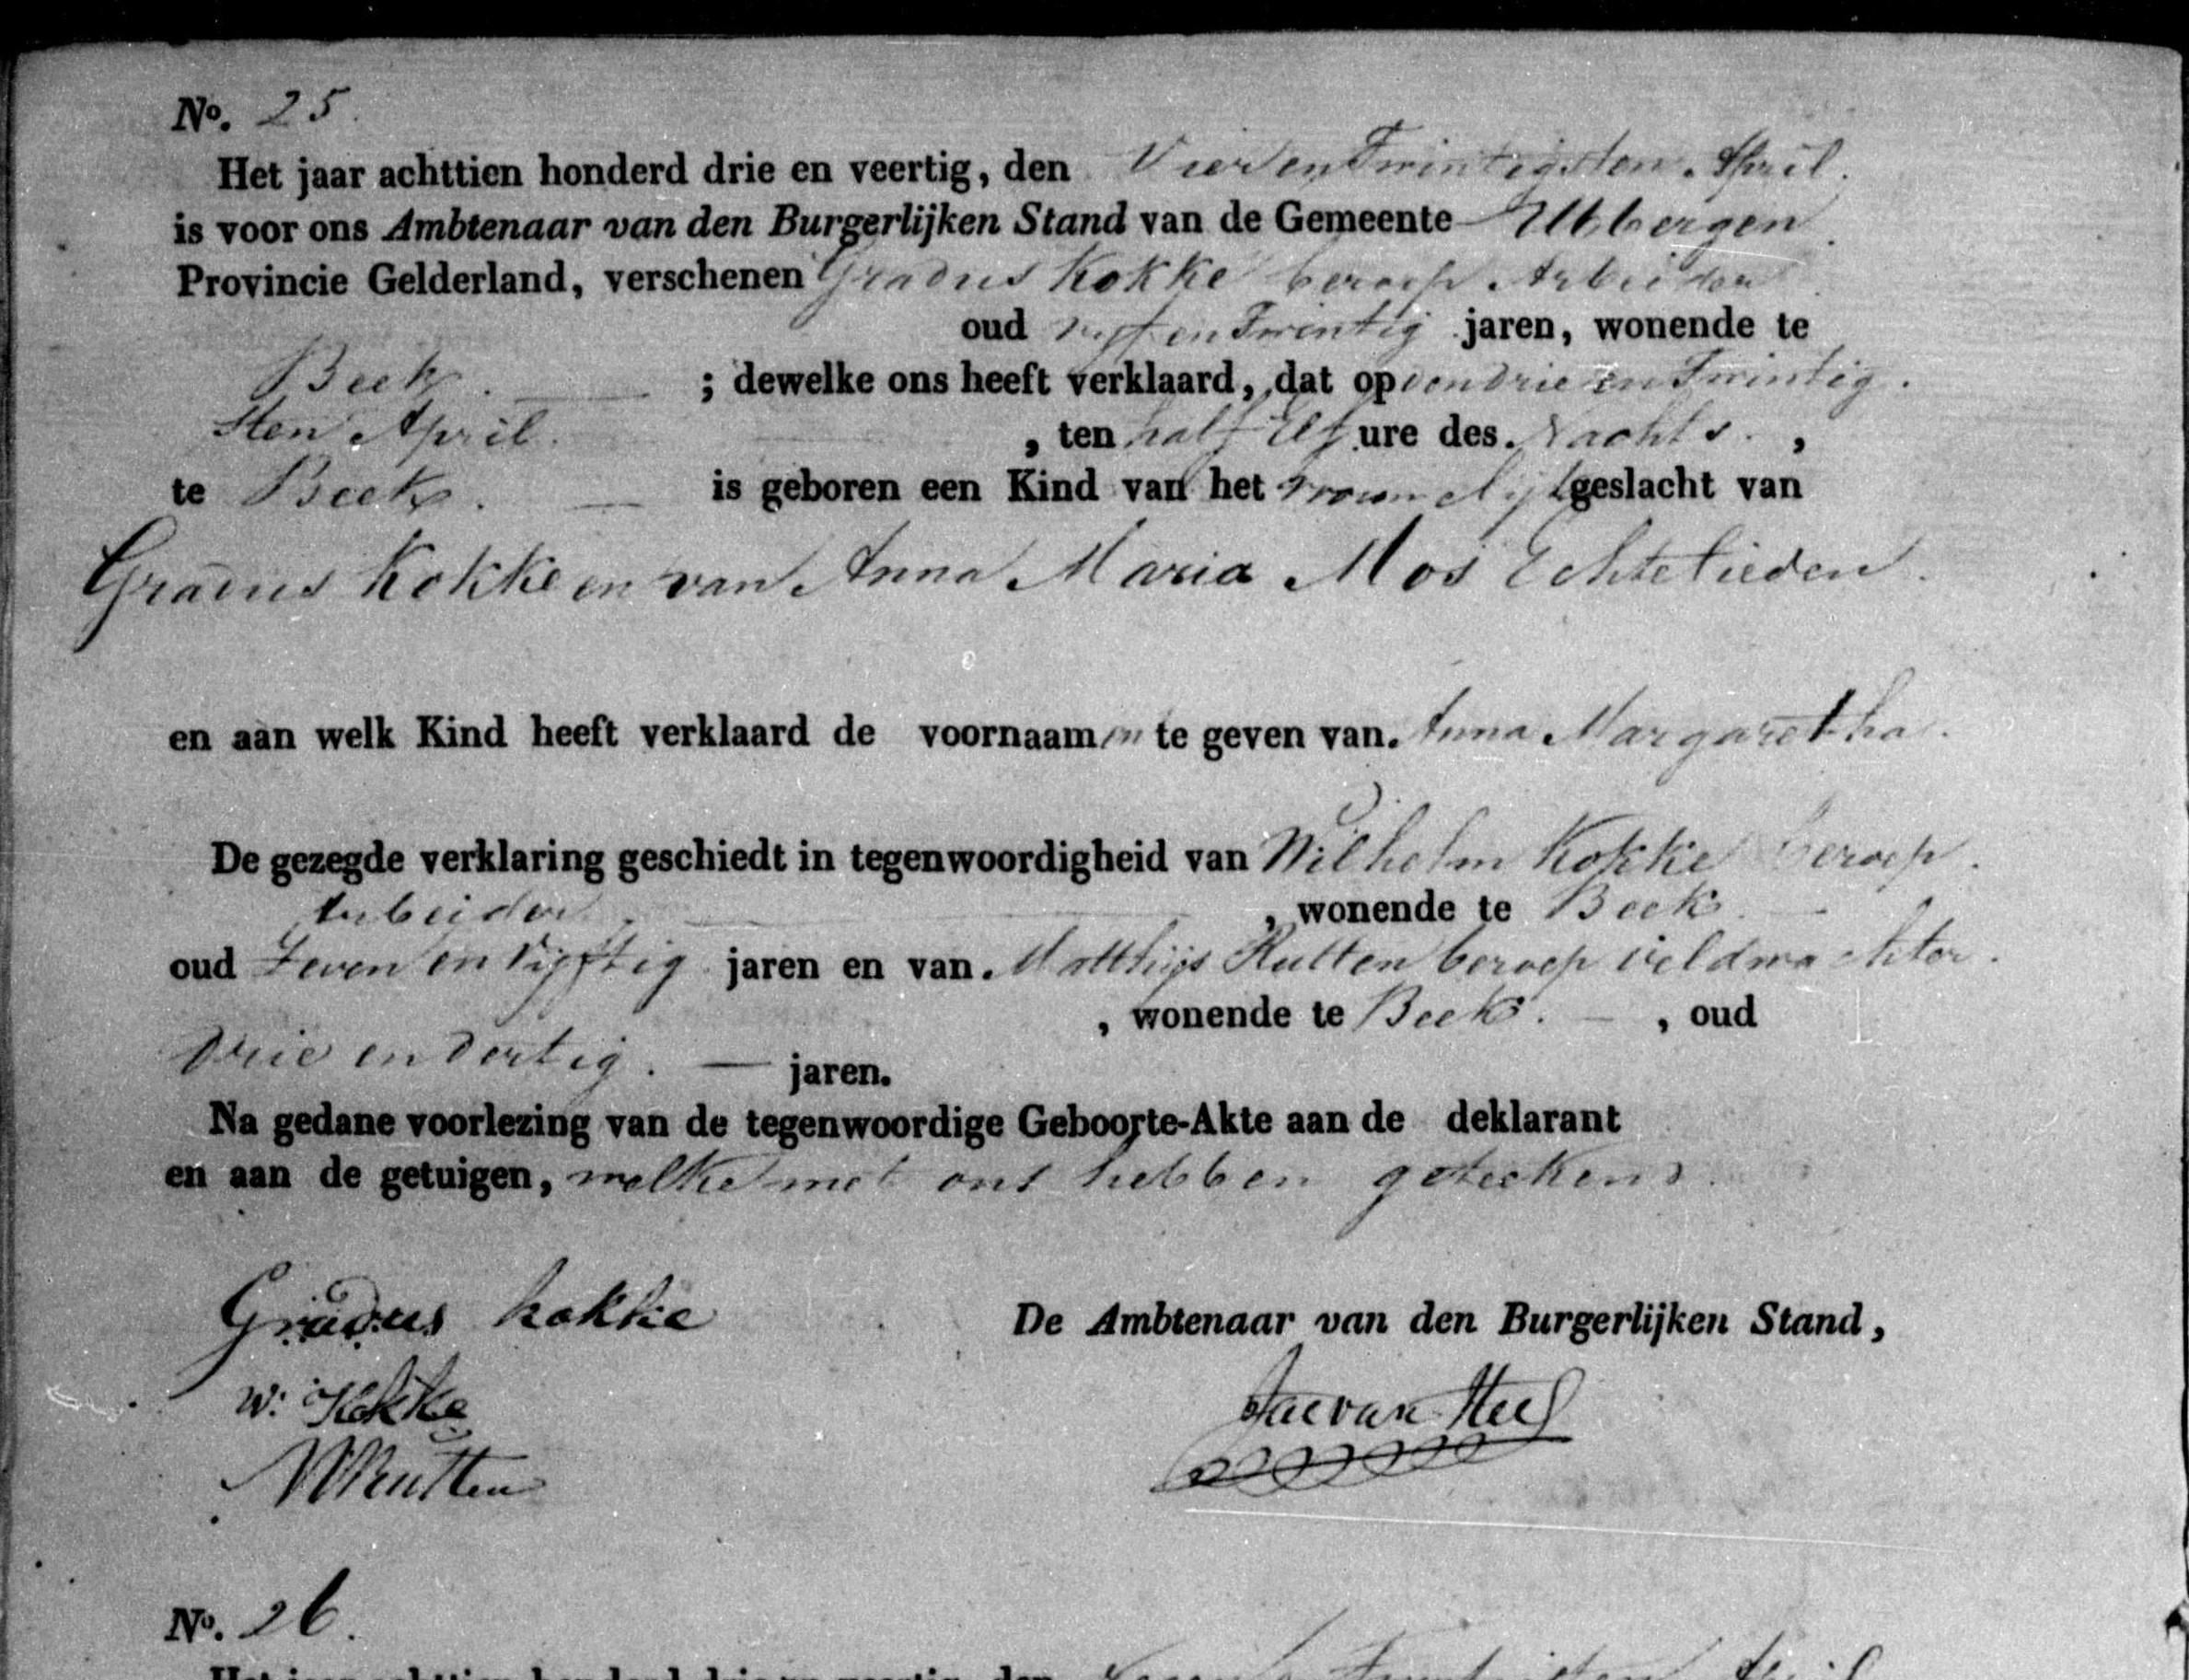 No. 25.
Het jaar achttien honderd drie en veertig, den Vier en Twintigsten April.
is voor ons Ambtenaar van den Burgerlijken Stand van de Gemeente Ubbergen
Provincie Gelderland, verschenen Gradus Kokke beroep Arbeider
oud vijf en Twintig jaren, wonende te
Beek. ; dewelke ons heeft verklaard, dat op den drie en Twintig.
sten April. , ten half Elf ure des Nachts. ,
te Beek. is geboren een Kind van het vrouwelijk geslacht van
Gradus Kokke en van Anna Maria Mos Echtelieden.
en aan welk Kind heeft verklaard de voornaamen te geven van Anna Margaretha.
De gezegde verklaring geschiedt in tegenwoordigheid van Wilhelm Kokke beroep.
Arbeider. , wonende te Beek.
oud Zeven en Vijftig jaren en van Matthijs Rutten beroep veldwachter.
, wonende te Beek. , oud
Drie en Dertig. jaren.
Na gedane voorlezing van de tegenwoordige Geboorte-Akte aan de deklarant
en aan de getuigen, welke met ons hebben geteekend.
Gradus kokke
De Ambtenaar van den Burgerlijken Stand,
W: Kokke
M Rutten
No. 26.